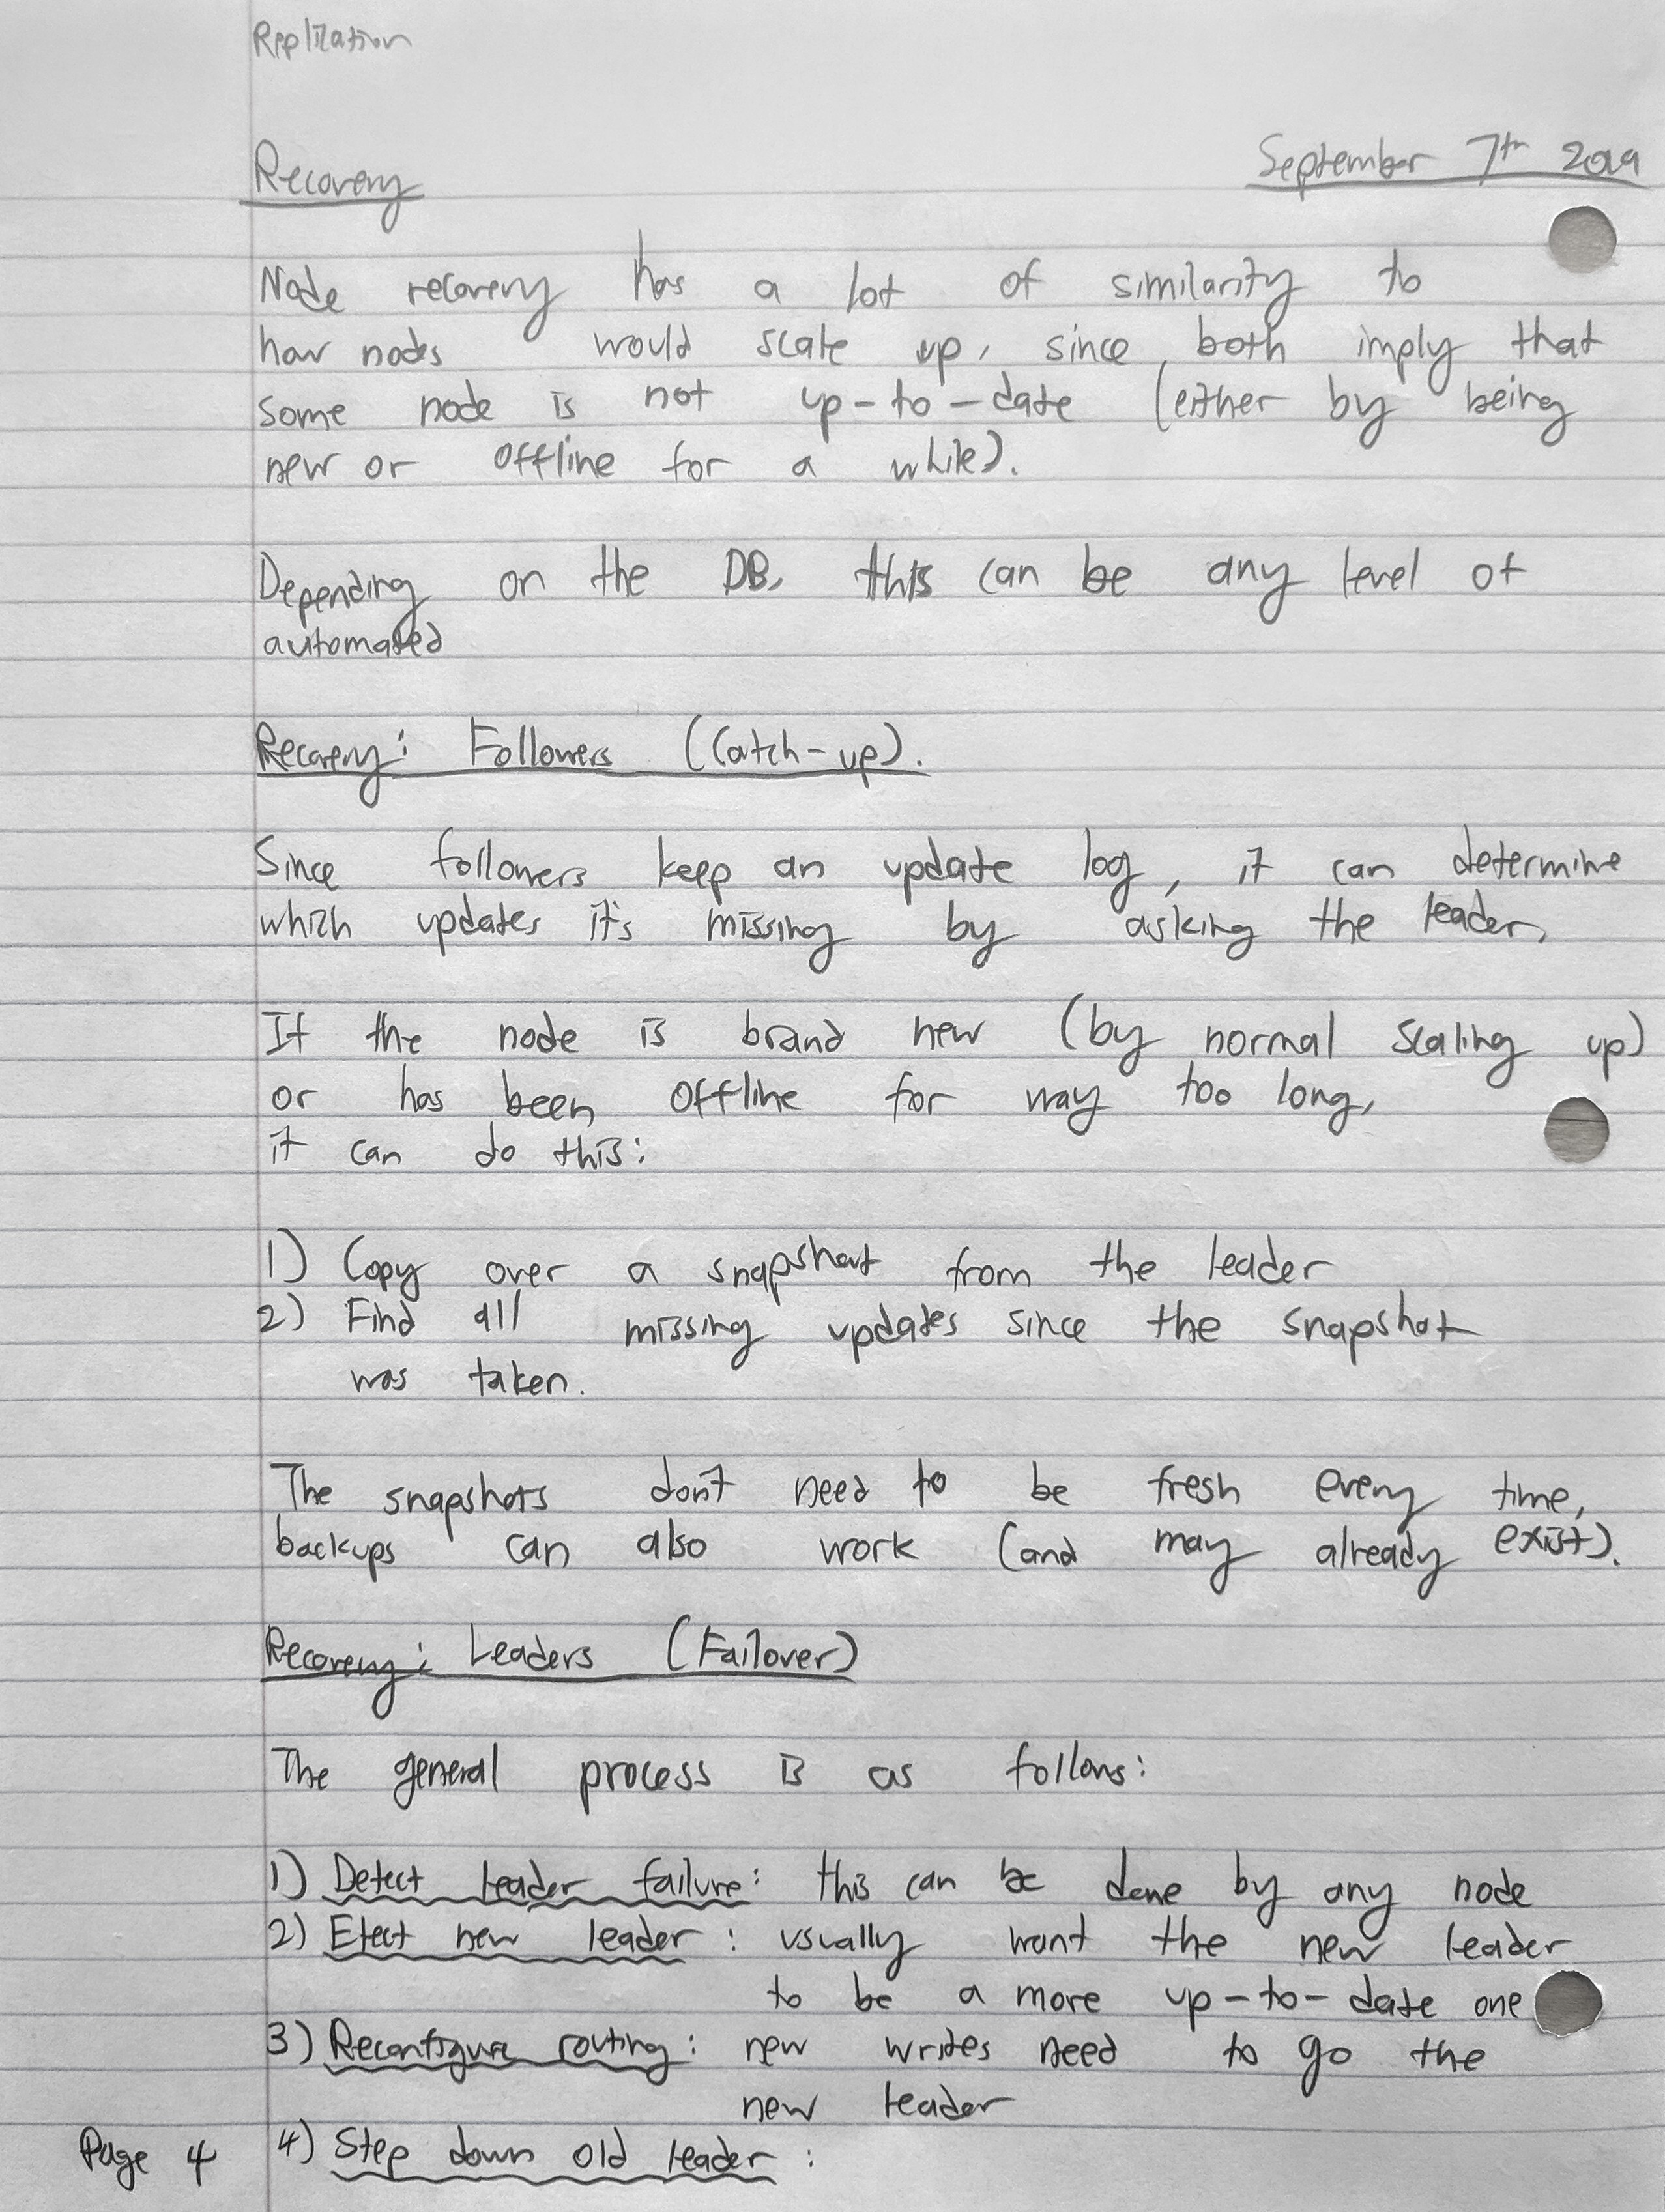 Replication
Recovery
September 7th 2019
Node recovery has a lot of similarity to
how nodes would scale up, since both imply that
some node is not up-to-date (either by being
new or offline for a while).
Depending on the DB, this can be any level of
automated
Recovery: Followers (Catch-up).
Since followers keep an update log, it can determine
which updates it's missing by asking the leader,
If the node is brand new (by normal scaling up)
or has been offline for way too long,
it can do this:
1) Copy over a snapshot from the leader
2) Find all missing updates since the snapshot
was taken.
The snapshots don't need to be fresh every time,
backups can also work (and may already exist).
Recovery: Leaders (Failover)
The general process is as follows:
1) Detect leader failure: this can be done by any node
2) Elect new leader: usually want the new leader
to be a more up-to-date one
3) Reconfigure routing: new writes need to go the
new leader
4) Step down old leader:
Page 4